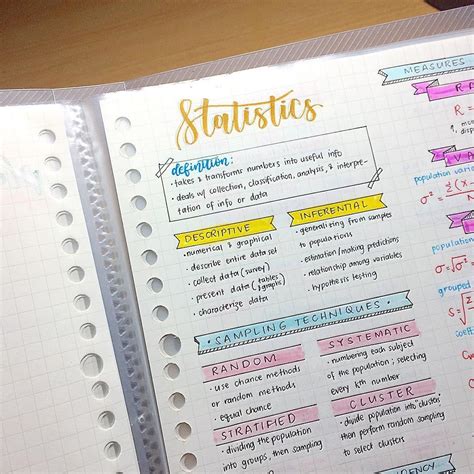 Statistics
definition:
• takes & transforms numbers into useful info
• deals w/ collection, classification, analysis, & interpre-
tation of info or data
DESCRIPTIVE
• numerical & graphical
• describe entire data set
• collect data (survey)
• present data (tables
graphs)
• characterize data
INFERENTIAL
• generalizing from samples
to populations
• estimation/making predictions
• relationship among variables
• hypothesis testing
SAMPLING TECHNIQUES
RANDOM
• use chance methods
or random methods
• equal chance
STRATIFIED
• dividing the population
into groups, then sampling
SYSTEMATIC
• numbering each subject
of the population; selecting
every kth number
CLUSTER
• divide population into "clusters"
then perform random sampling
to select clusters
MEASURES
R =
population
σ² =
population
σ = √σ²
grouped
S =